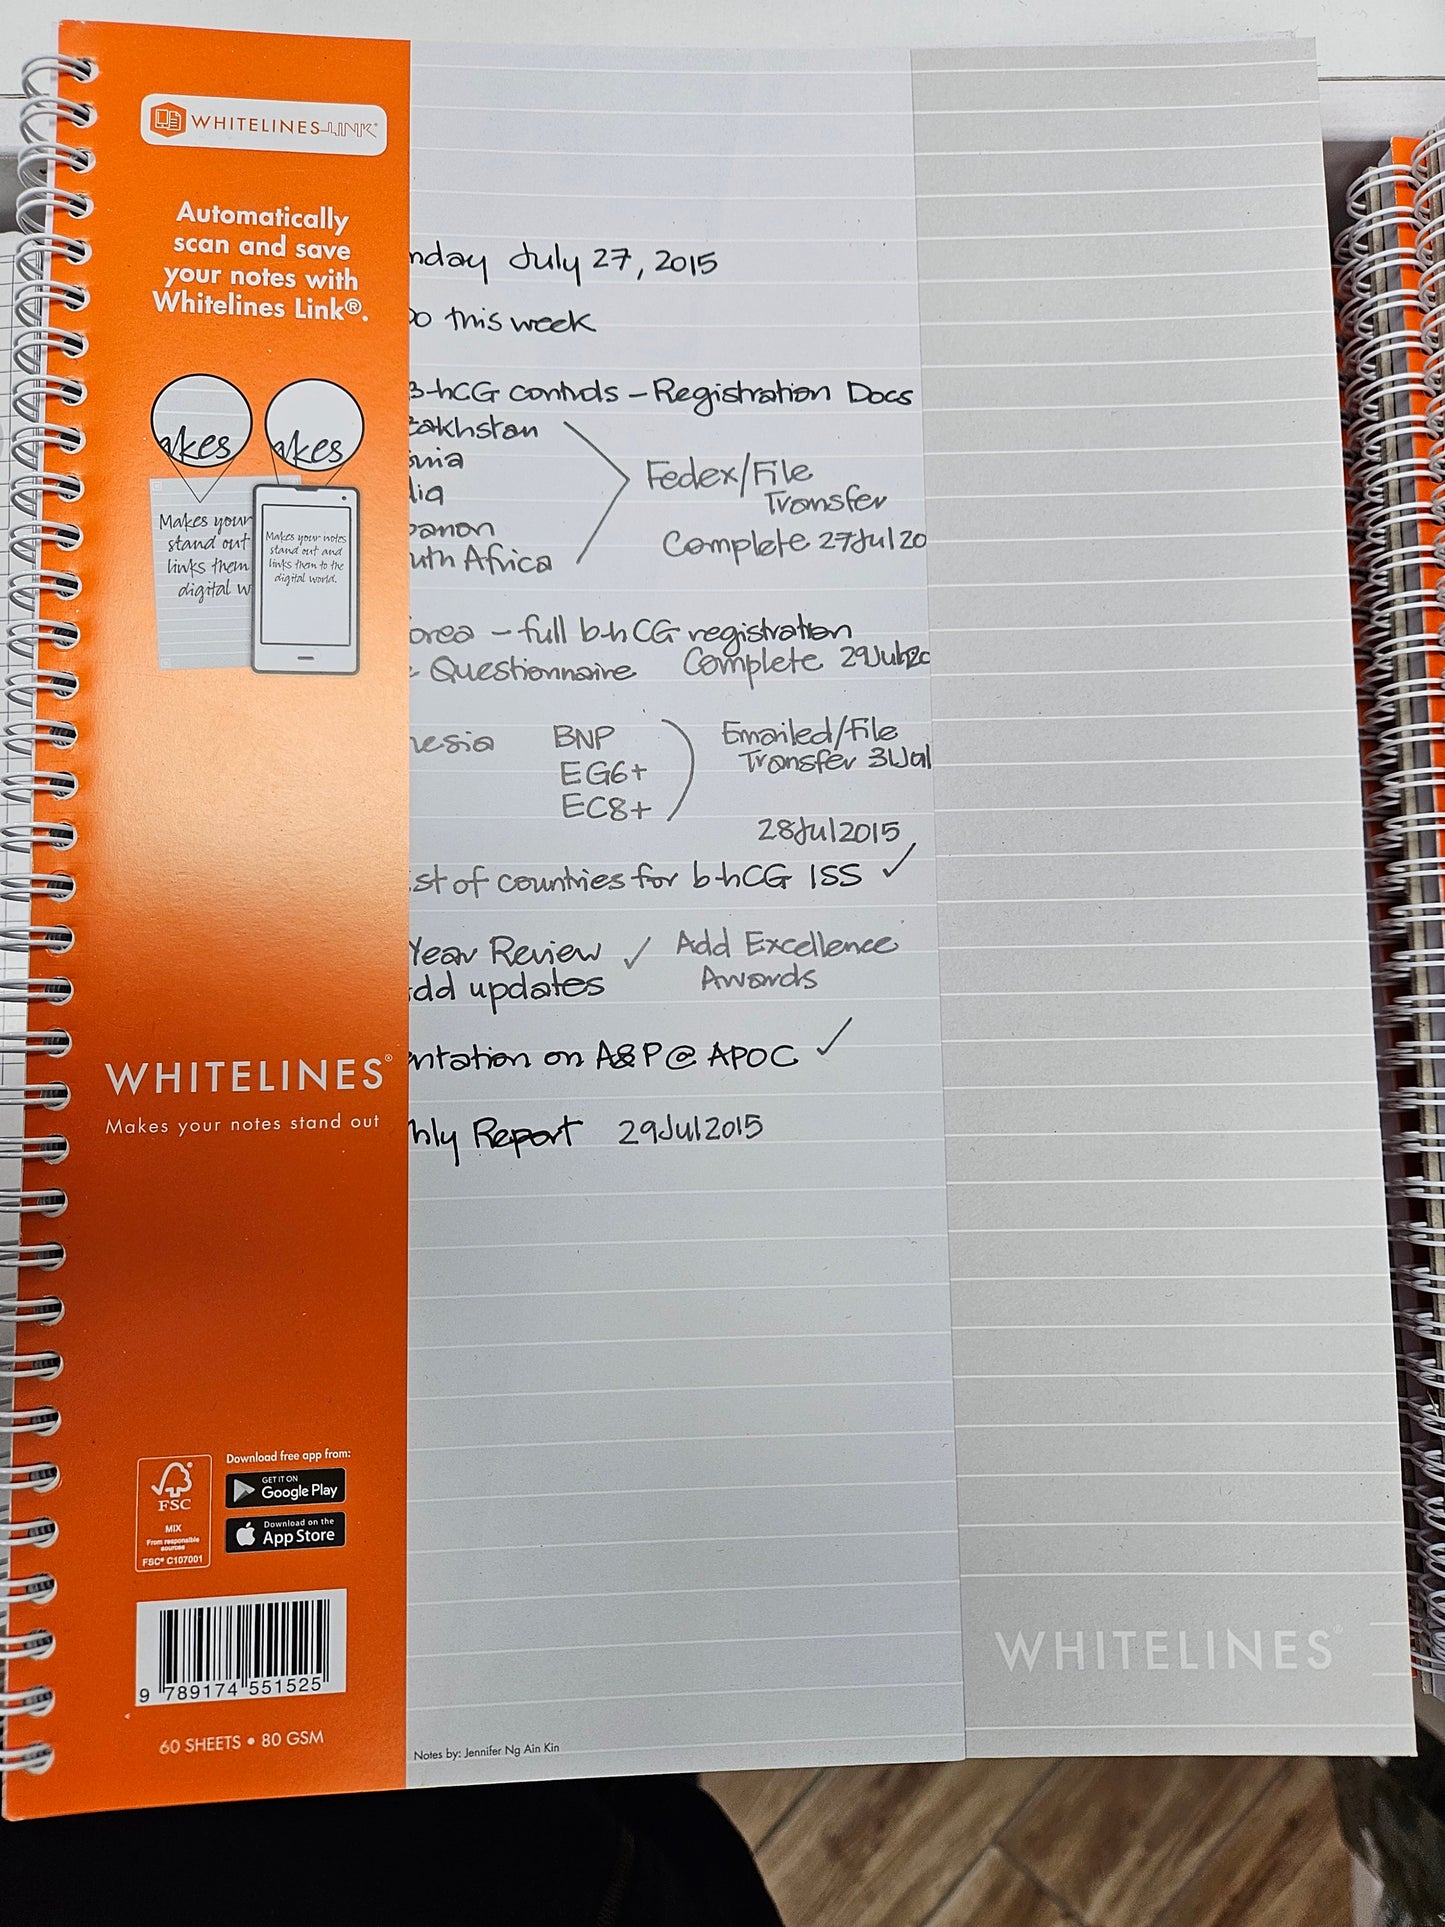 WHITELINES LINK®
Automatically
scan and save
your notes with
Whitelines Link®.
akes
akes
Makes your
stand out
links them
digital w
Makes your notes
stand out and
links them to the
digital world.
WHITELINES®
Makes your notes stand out
FSC
MIX
From responsible
sources
FSC® C107001
Download free app from:
GET IT ON
Google Play
Download on the
App Store
9 789174 551525
60 SHEETS • 80 GSM
nday July 27, 2015
Do this week
B-hCG controls - Registration Docs
zakhstan
onia
dia
banon
uth Africa
Fedex/File
Transfer
Complete 27Jul20
orea - full b-hCG registration
& Questionnaire Complete 29Jul20
nesia BNP
EG6+
EC8+
Emailed/File
Transfer 31Jul
28Jul2015
ist of countries for b-hCG ISS ✓
Year Review ✓ Add Excellence
Awards
dd updates
entation on A&P @ APOC ✓
hly Report 29Jul2015
Notes by: Jennifer Ng Ain Kin
WHITELINES®